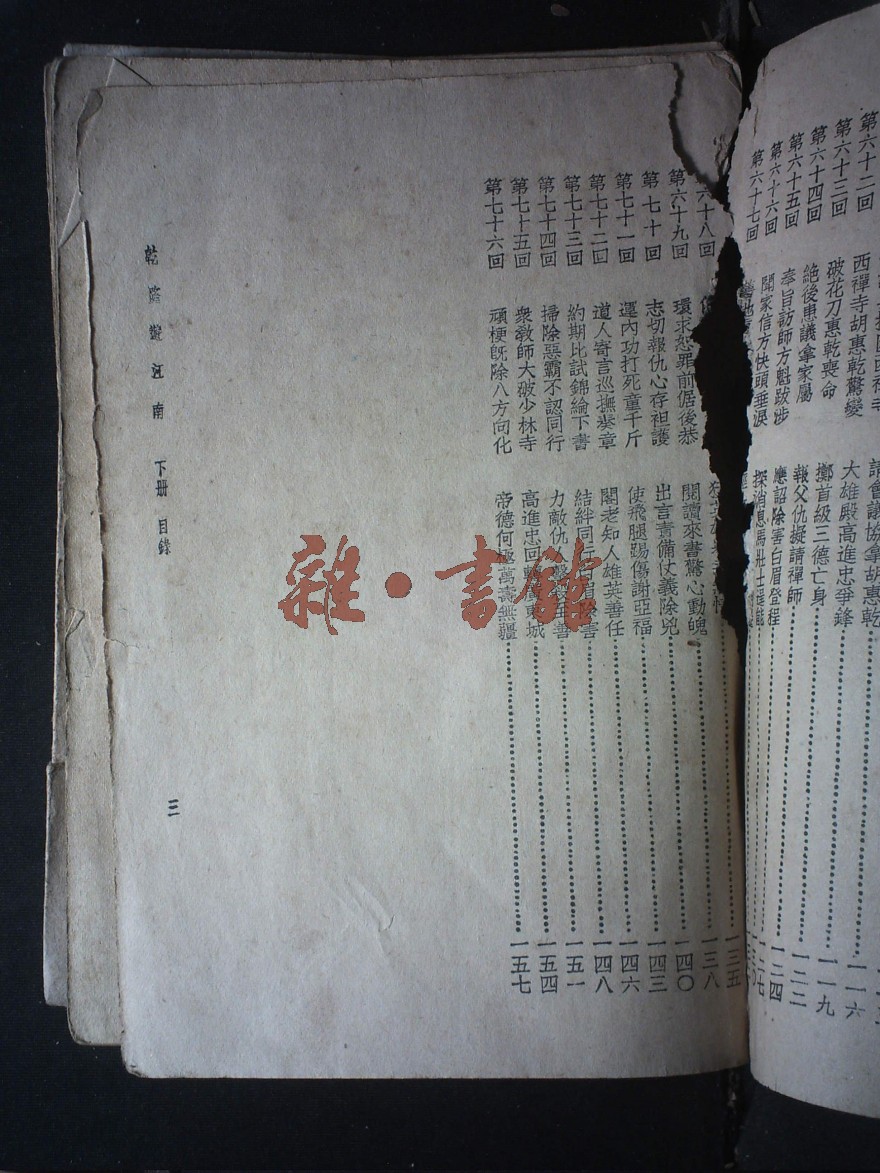 第六十二回
第六十三回 西禪寺胡惠乾驚變 大雄殿高進忠爭鋒 一一六
第六十四回 破花刀惠乾喪命 擲首級三德亡身 一一九
第六十五回 絶後患議拿家屬 報父仇擬請禪師 一二二
第六十六回 奉旨訪師方魁跋涉 應詔除害白眉登程 一二四
第六十七回 聞家信方快頭垂淚 探消息馮壯士逞能 一二七
十八回 一三五
第六十九回 環求恕罪前倨後恭 閱讀來書驚心動魄 一三八
第七十回 志切報仇心存袒護 出言責備仗義除兇 一四〇
第七十一回 運內功打死童千斤 使飛腿踢傷謝亞福 一四三
第七十二回 道人寄言巡撫奏章 閣老知人雄英善任 一四六
第七十三回 約期比試錦綸下書 結絆同行白眉除害 一四八
第七十四回 掃除惡霸不認同行 力敵仇 至善 一五一
第七十五回 衆教師大破少林寺 高進忠回 東城 一五四
第七十六回 頑梗旣除八方向化 帝德何極萬壽無疆 一五七
乾隆遊江南 下册 目錄
三
雜·書館